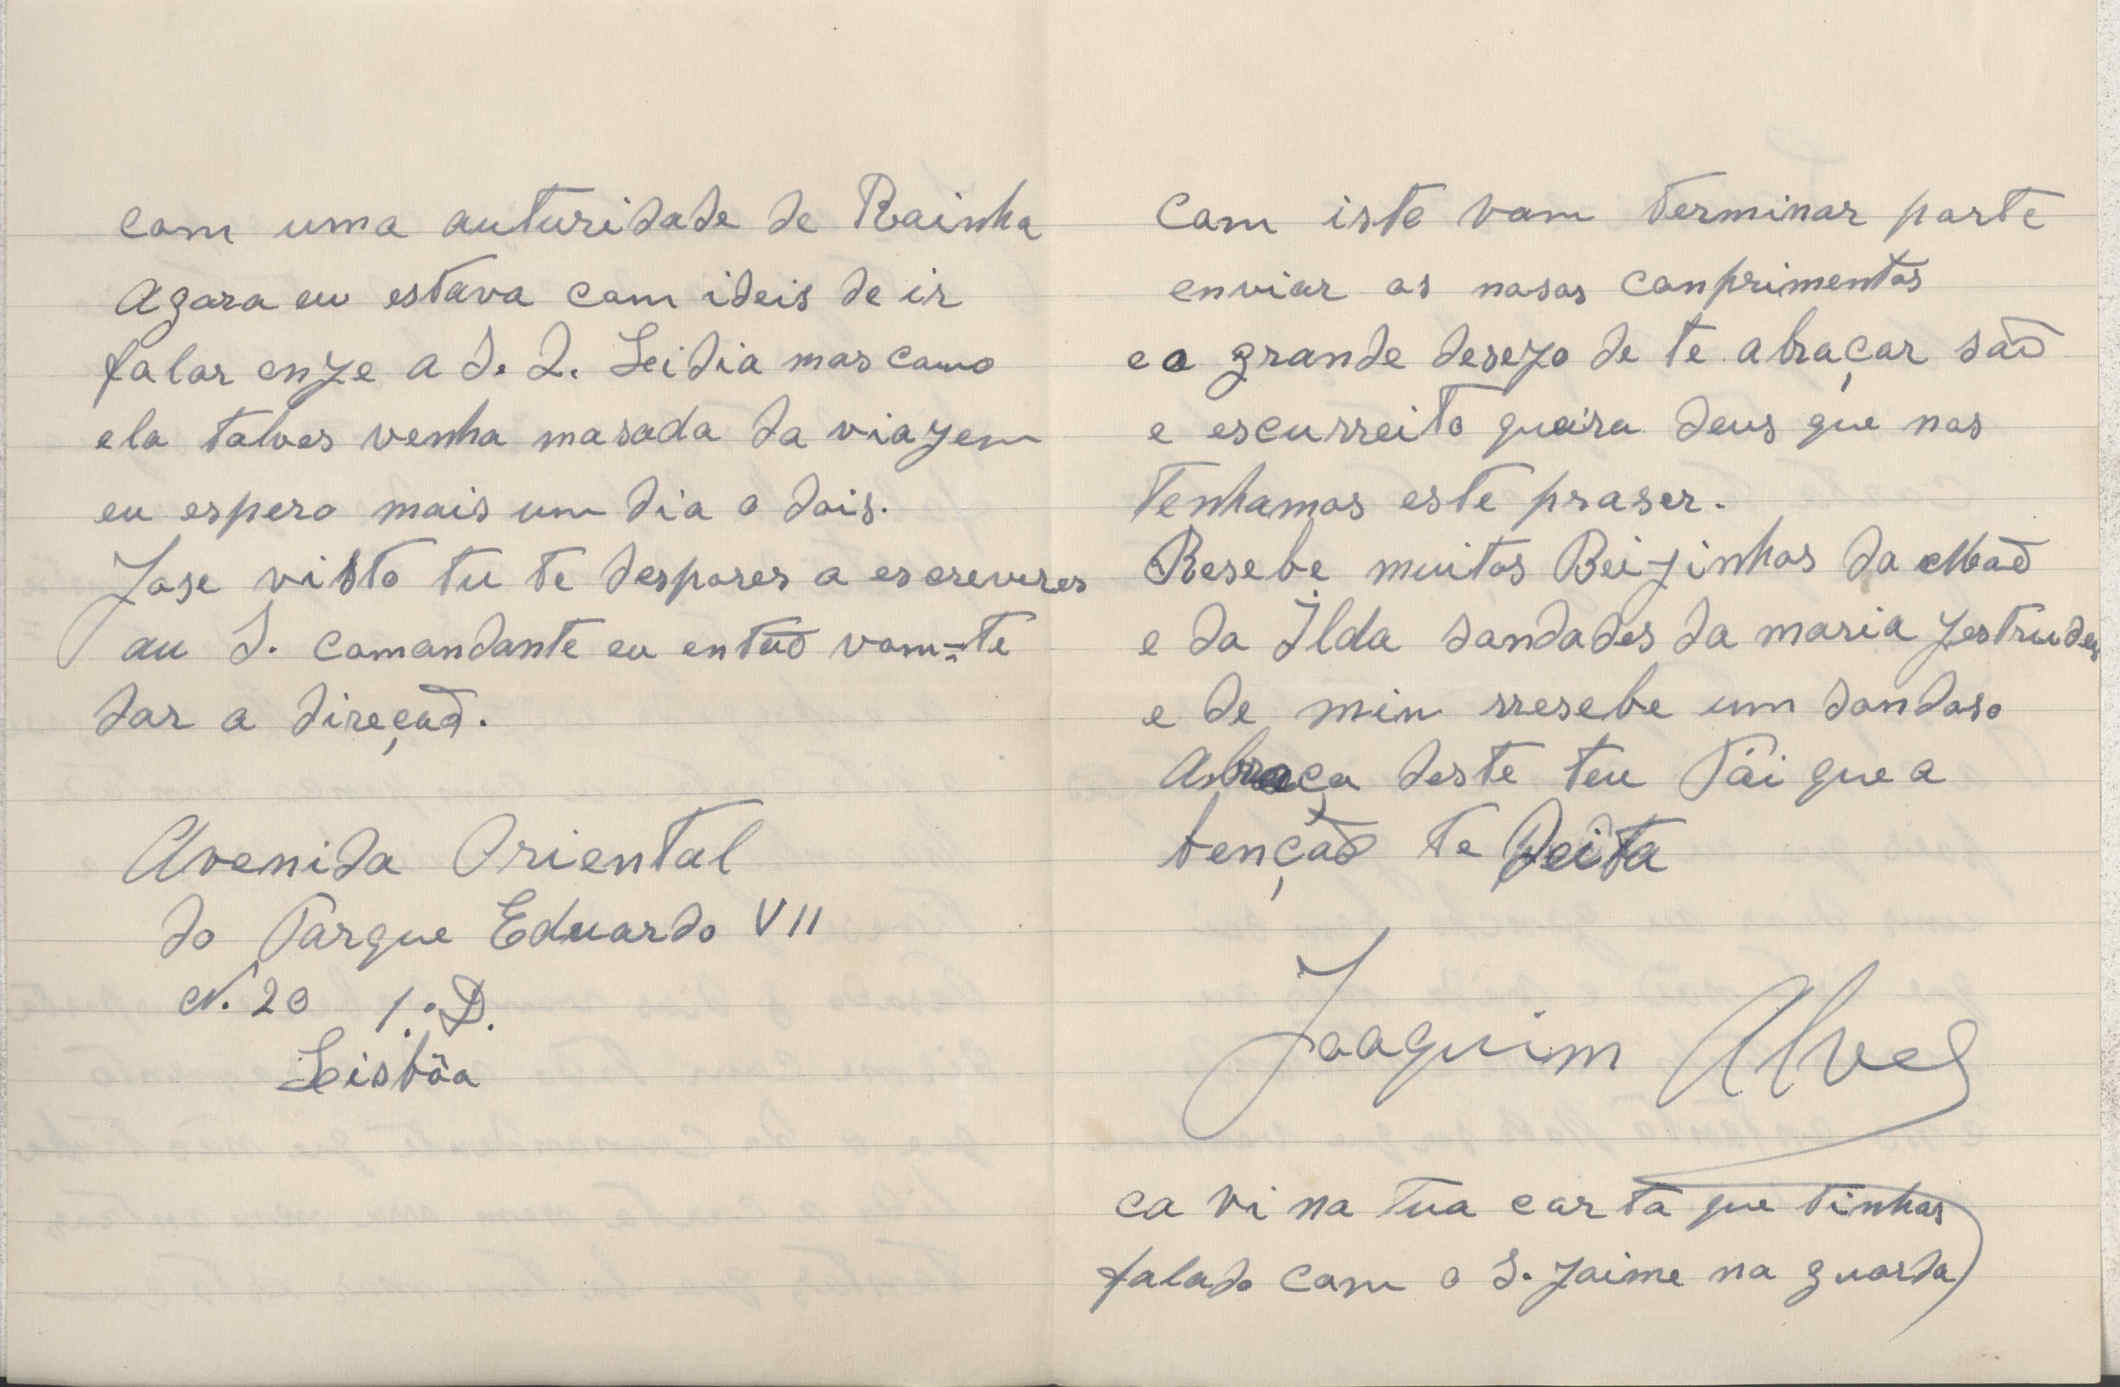 com uma auturidade de Rainha
Agora eu estava com ideis de ir
falar onze a S. D. Leidia mas como
ela talves venha masada da viazem
eu espero mais um dia o dois.
Jose visto tu te despores a escreveres
au S. comandante eu entaõ vom=te
dar a direçaõ.
Avenida Oriental
do Parque Eduardo VII
N. 20 1.º D.
Leisbôa
Com isto vom terminar parte
enviar os nosos conprimentos
e o grande desezo de te abraçar saõ
e escurreito queira deus que nos
Tenhamos este praser.
Resebe muitos Beizinhos da Maõ
e da Ilda saudades da maria Jestrudes
e de min rresebe um saudoso
Abraço deste teu Pai que a
bençaõ te Deita
Joaquim Alves
ca vi na tua carta que tinhas
falado com o S. Jaime na guarda